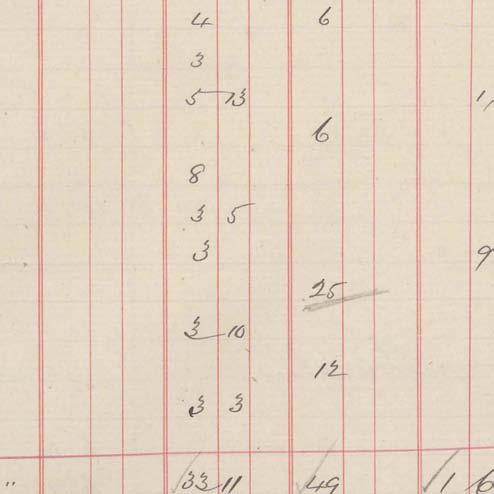 4 6
3
5 13 1
6
8
3 5
3 9
25
3 10
12
3 3
" 33 11 49 1 6